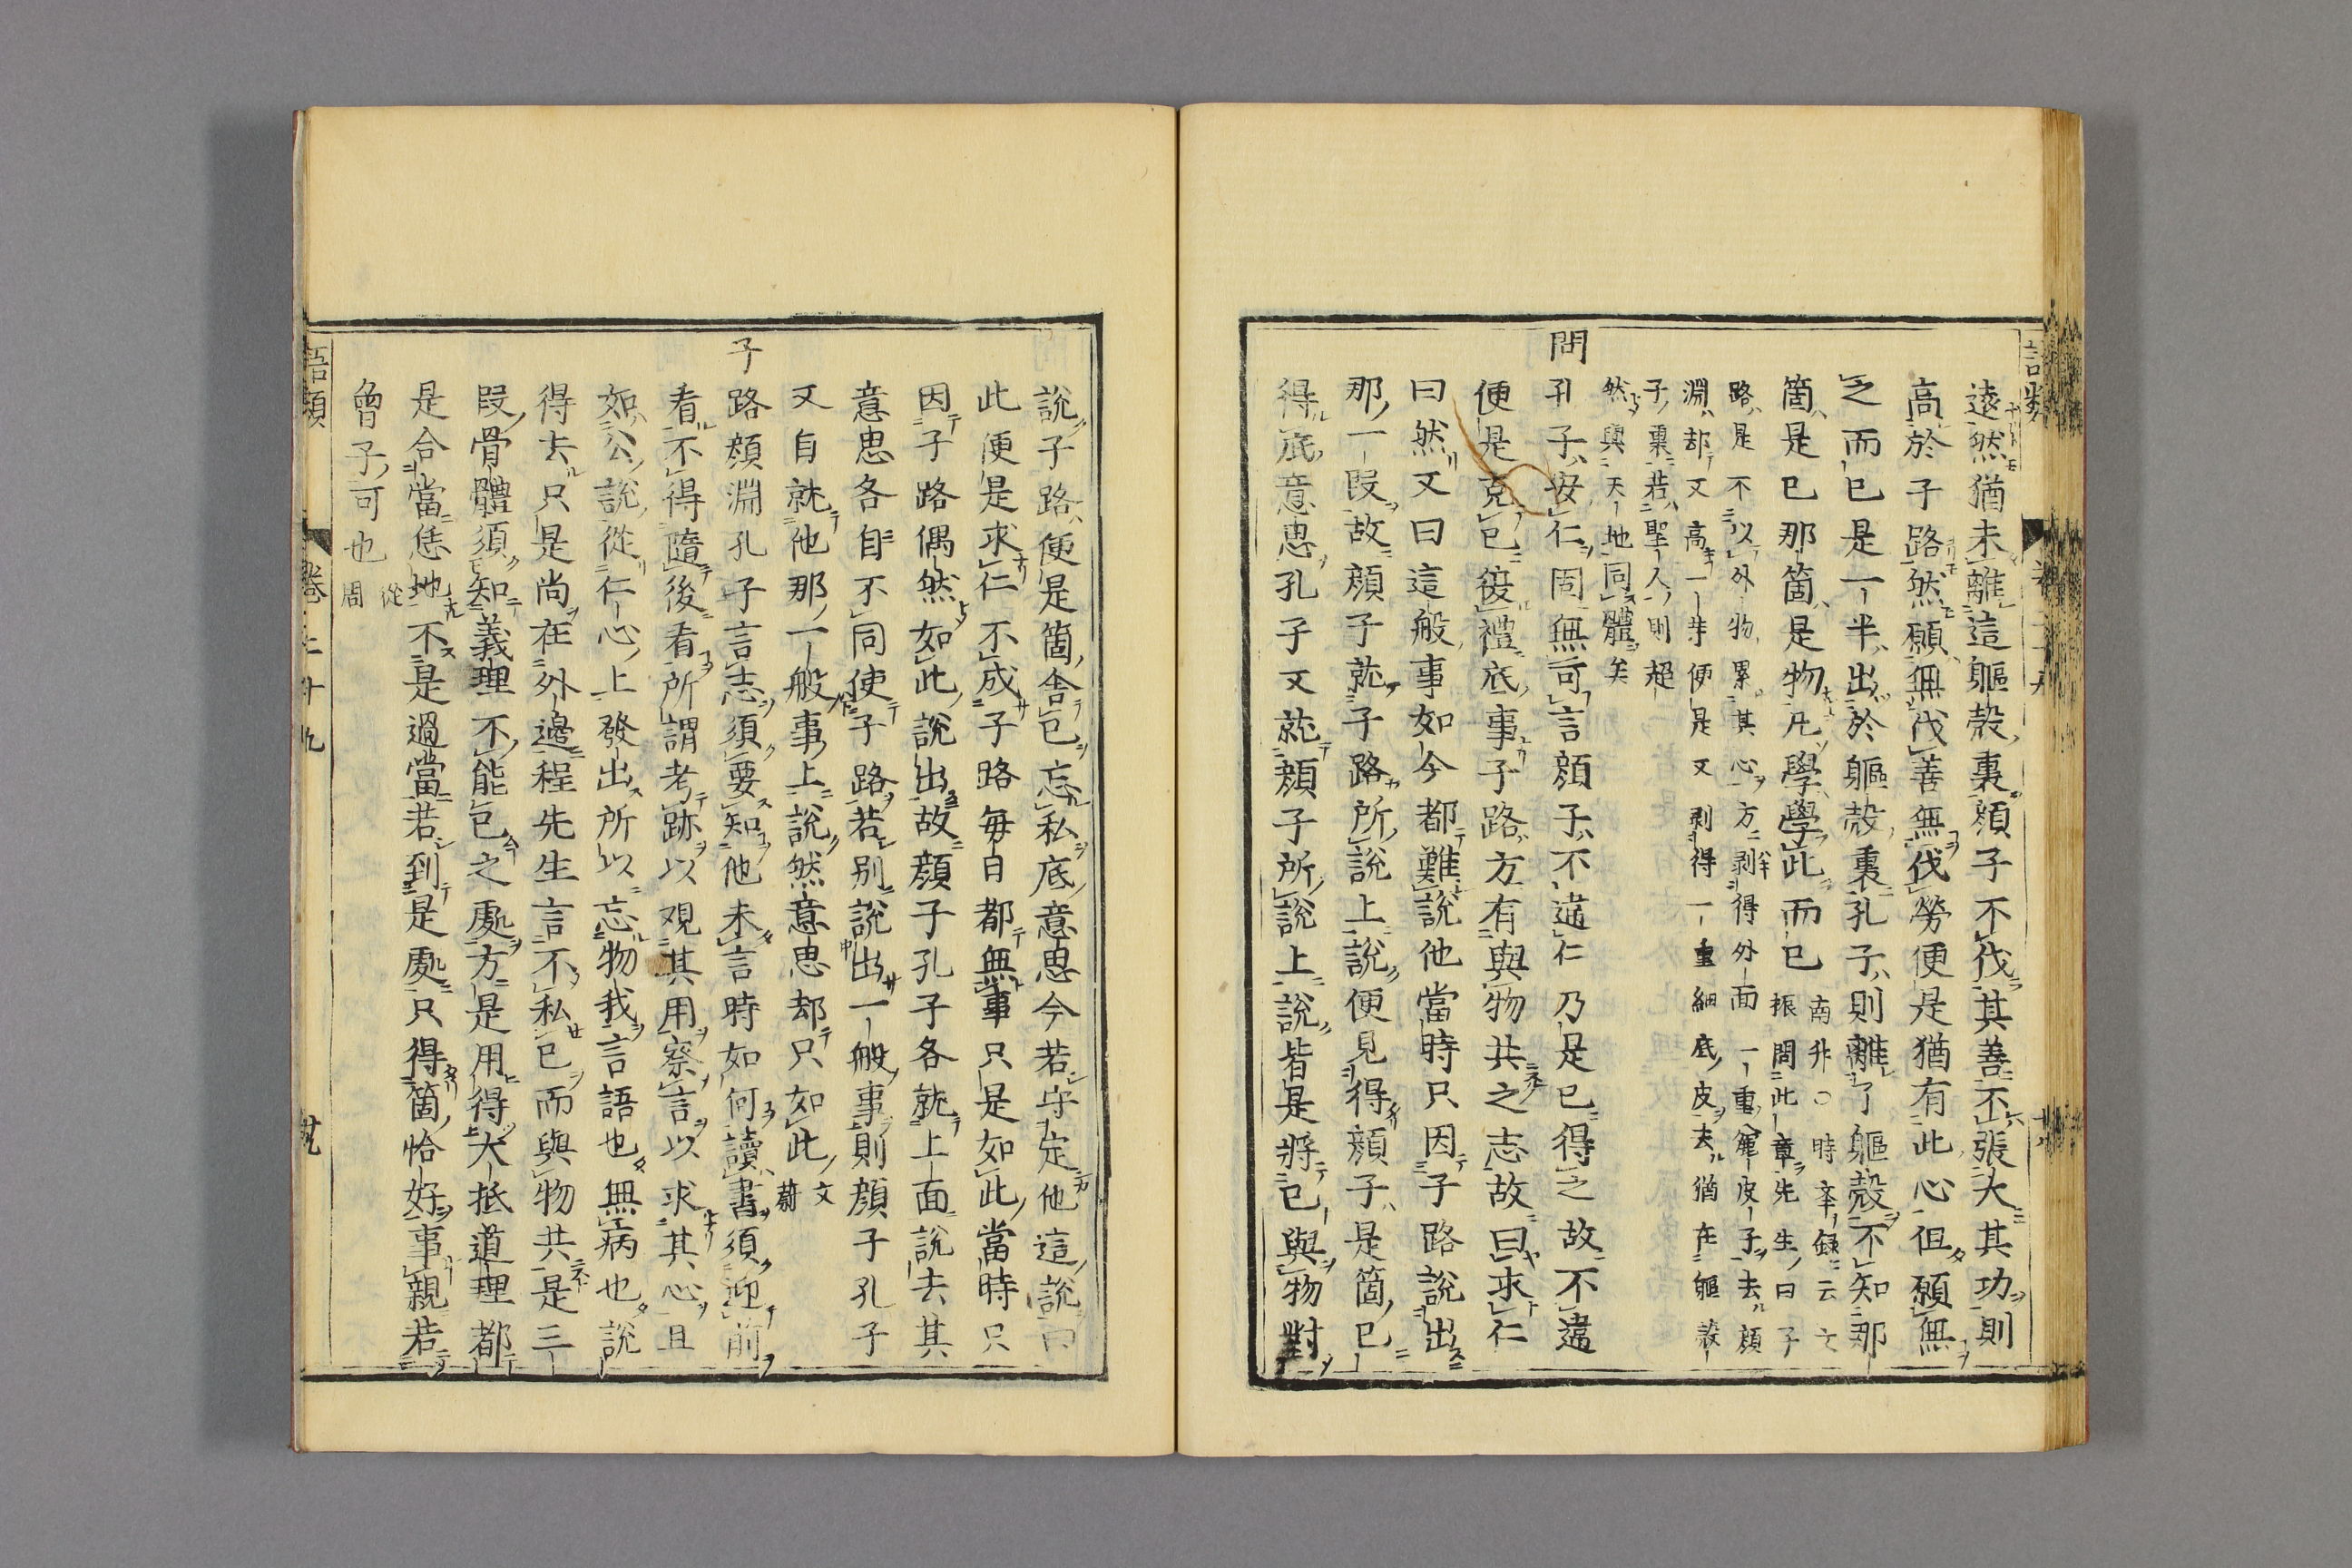 遠然猶未離這軀殼裏顔子不伐其善不張大其功則
高於子路然願無伐善無伐勞便是猶有此心但願無
之而已是一半出於軀殼裏孔子則離了軀殼不知那
箇是已那箇是物凡學學此而已
南升○時舉録云文
振問此章先生曰子
路是不以外物累其心方剥得外面一重麁皮子去顔
淵却又高一等便是又剥得一重細底皮去猶在軀殼
子裏若聖人則超
然與天地同體矣
問孔子安仁固無可言顔子不違仁乃是已得之故不違
便是克已復禮底事子路方有與物共之志故曰求仁
曰然又曰這般事如今都難說他當時只因子路說出
那一段故顔子就子路所說上說便見得顔子是箇已
得底意思孔子又就顔子所說上說皆是將已與物對
說子路便是箇舍已忘私底意思今若守定他這說曰
此便是求仁不成子路每日都無事只是如此當時只
因子路偶然如此說出故顔子孔子各就上面說去其
意思各自不同使子路若别說出一般事則顔子孔子
又自就他那一般事上說然意思却只如此
文
蔚
子路顔淵孔子言志須要知他未言時如何讀書須迎前
看不得隨後看所謂考跡以觀其用察言以求其心且
如公說從仁心上發出所以忘物我言語也無病也說
得去只是尚在外邊程先生言不私已而與物共是三
段骨體須知義理不能已之處方是用得大抵道理都
是合當恁地不是過當若到是處只得箇恰好事親若
曾子可也
從
周
語類
卷二十九